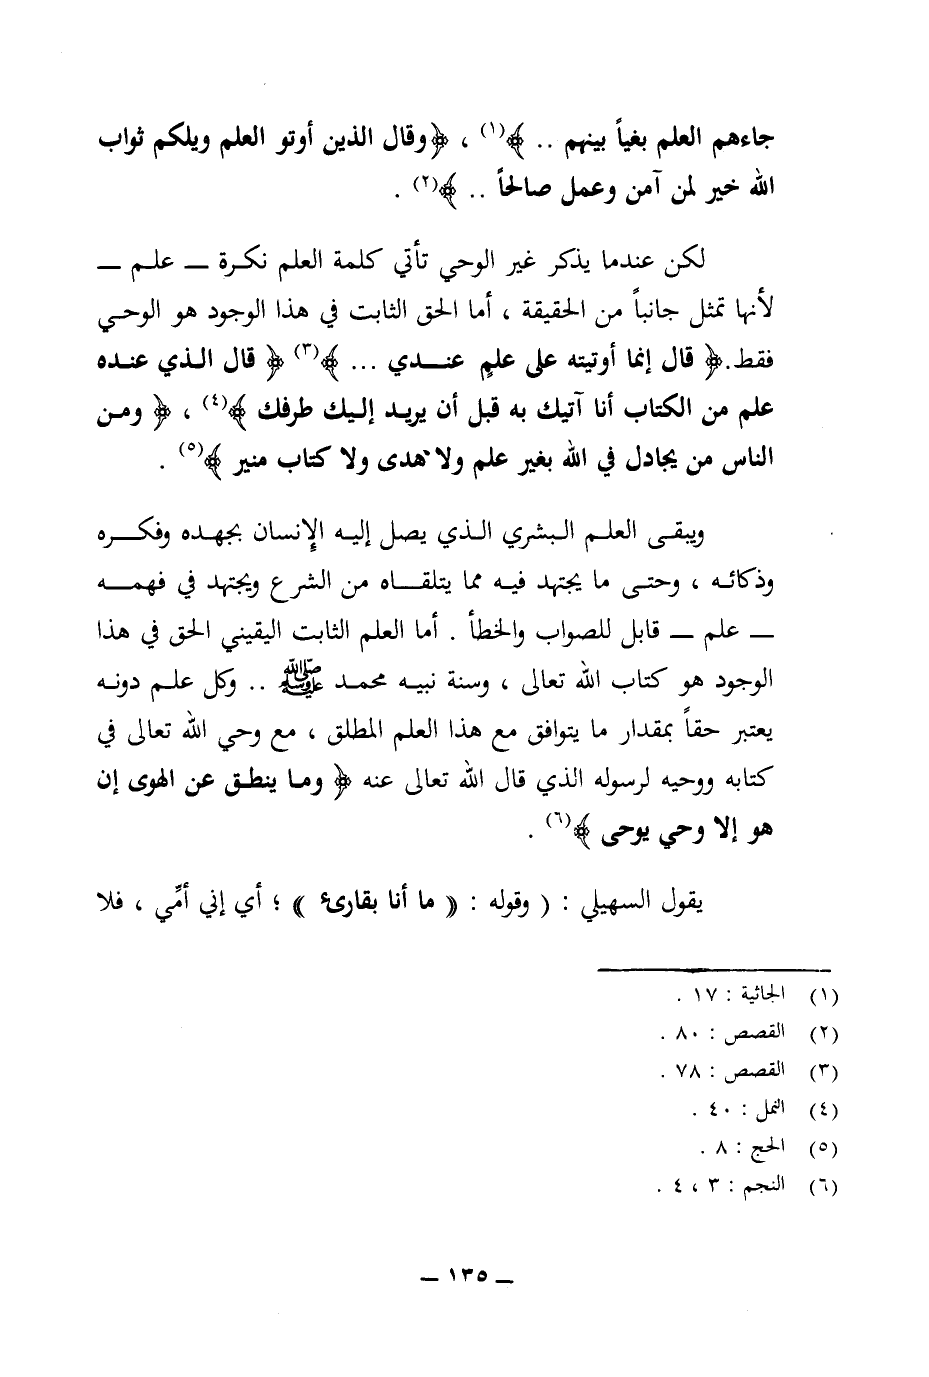 جاءهم العلم بغياً بينهم .. ﴾(١) ، ﴿وقال الذين أوتو العلم ويلكم ثواب
الله خير لمن آمن وعمل صالحاً .. ﴾(٢) .
لكن عندما يذكر غير الوحي تأتي كلمة العلم نكرة ـ علم ـ
لأنها تمثل جانباً من الحقيقة ، أما الحق الثابت في هذا الوجود هو الوحي
فقط.﴿ قال إنما أوتيته على علمٍ عندي ... ﴾(٣) ﴿ قال الذي عنده
علم من الكتاب أنا آتيك به قبل أن يريد إليك طرفك ﴾(٤) ، ﴿ ومن
الناس من يجادل في الله بغير علم ولا هدى ولا كتاب منير ﴾(٥) .
ويبقى العلم البشري الذي يصل إليه الإنسان بجهده وفكره
وذكائه ، وحتى ما يجتهد فيه مما يتلقاه من الشرع ويجتهد في فهمه
ـ علم ـ قابل للصواب والخطأ . أما العلم الثابت اليقيني الحق في هذا
الوجود هو كتاب الله تعالى ، وسنة نبيه محمد ﷺ .. وكل علم دونه
يعتبر حقاً بمقدار ما يتوافق مع هذا العلم المطلق ، مع وحي الله تعالى في
كتابه ووحيه لرسوله الذي قال الله تعالى عنه ﴿ وما ينطق عن الهوى إن
هو إلا وحي يوحى ﴾(٦) .
يقول السهيلي : ( وقوله : « ما أنا بقارئ » ؛ أي إني أمِّي ، فلا
(١) الجاثية : ١٧ .
(٢) القصص : ٨٠ .
(٣) القصص : ٧٨ .
(٤) النمل : ٤٠ .
(٥) الحج : ٨ .
(٦) النجم : ٣ ، ٤ .
ـ ١٣٥ ـ